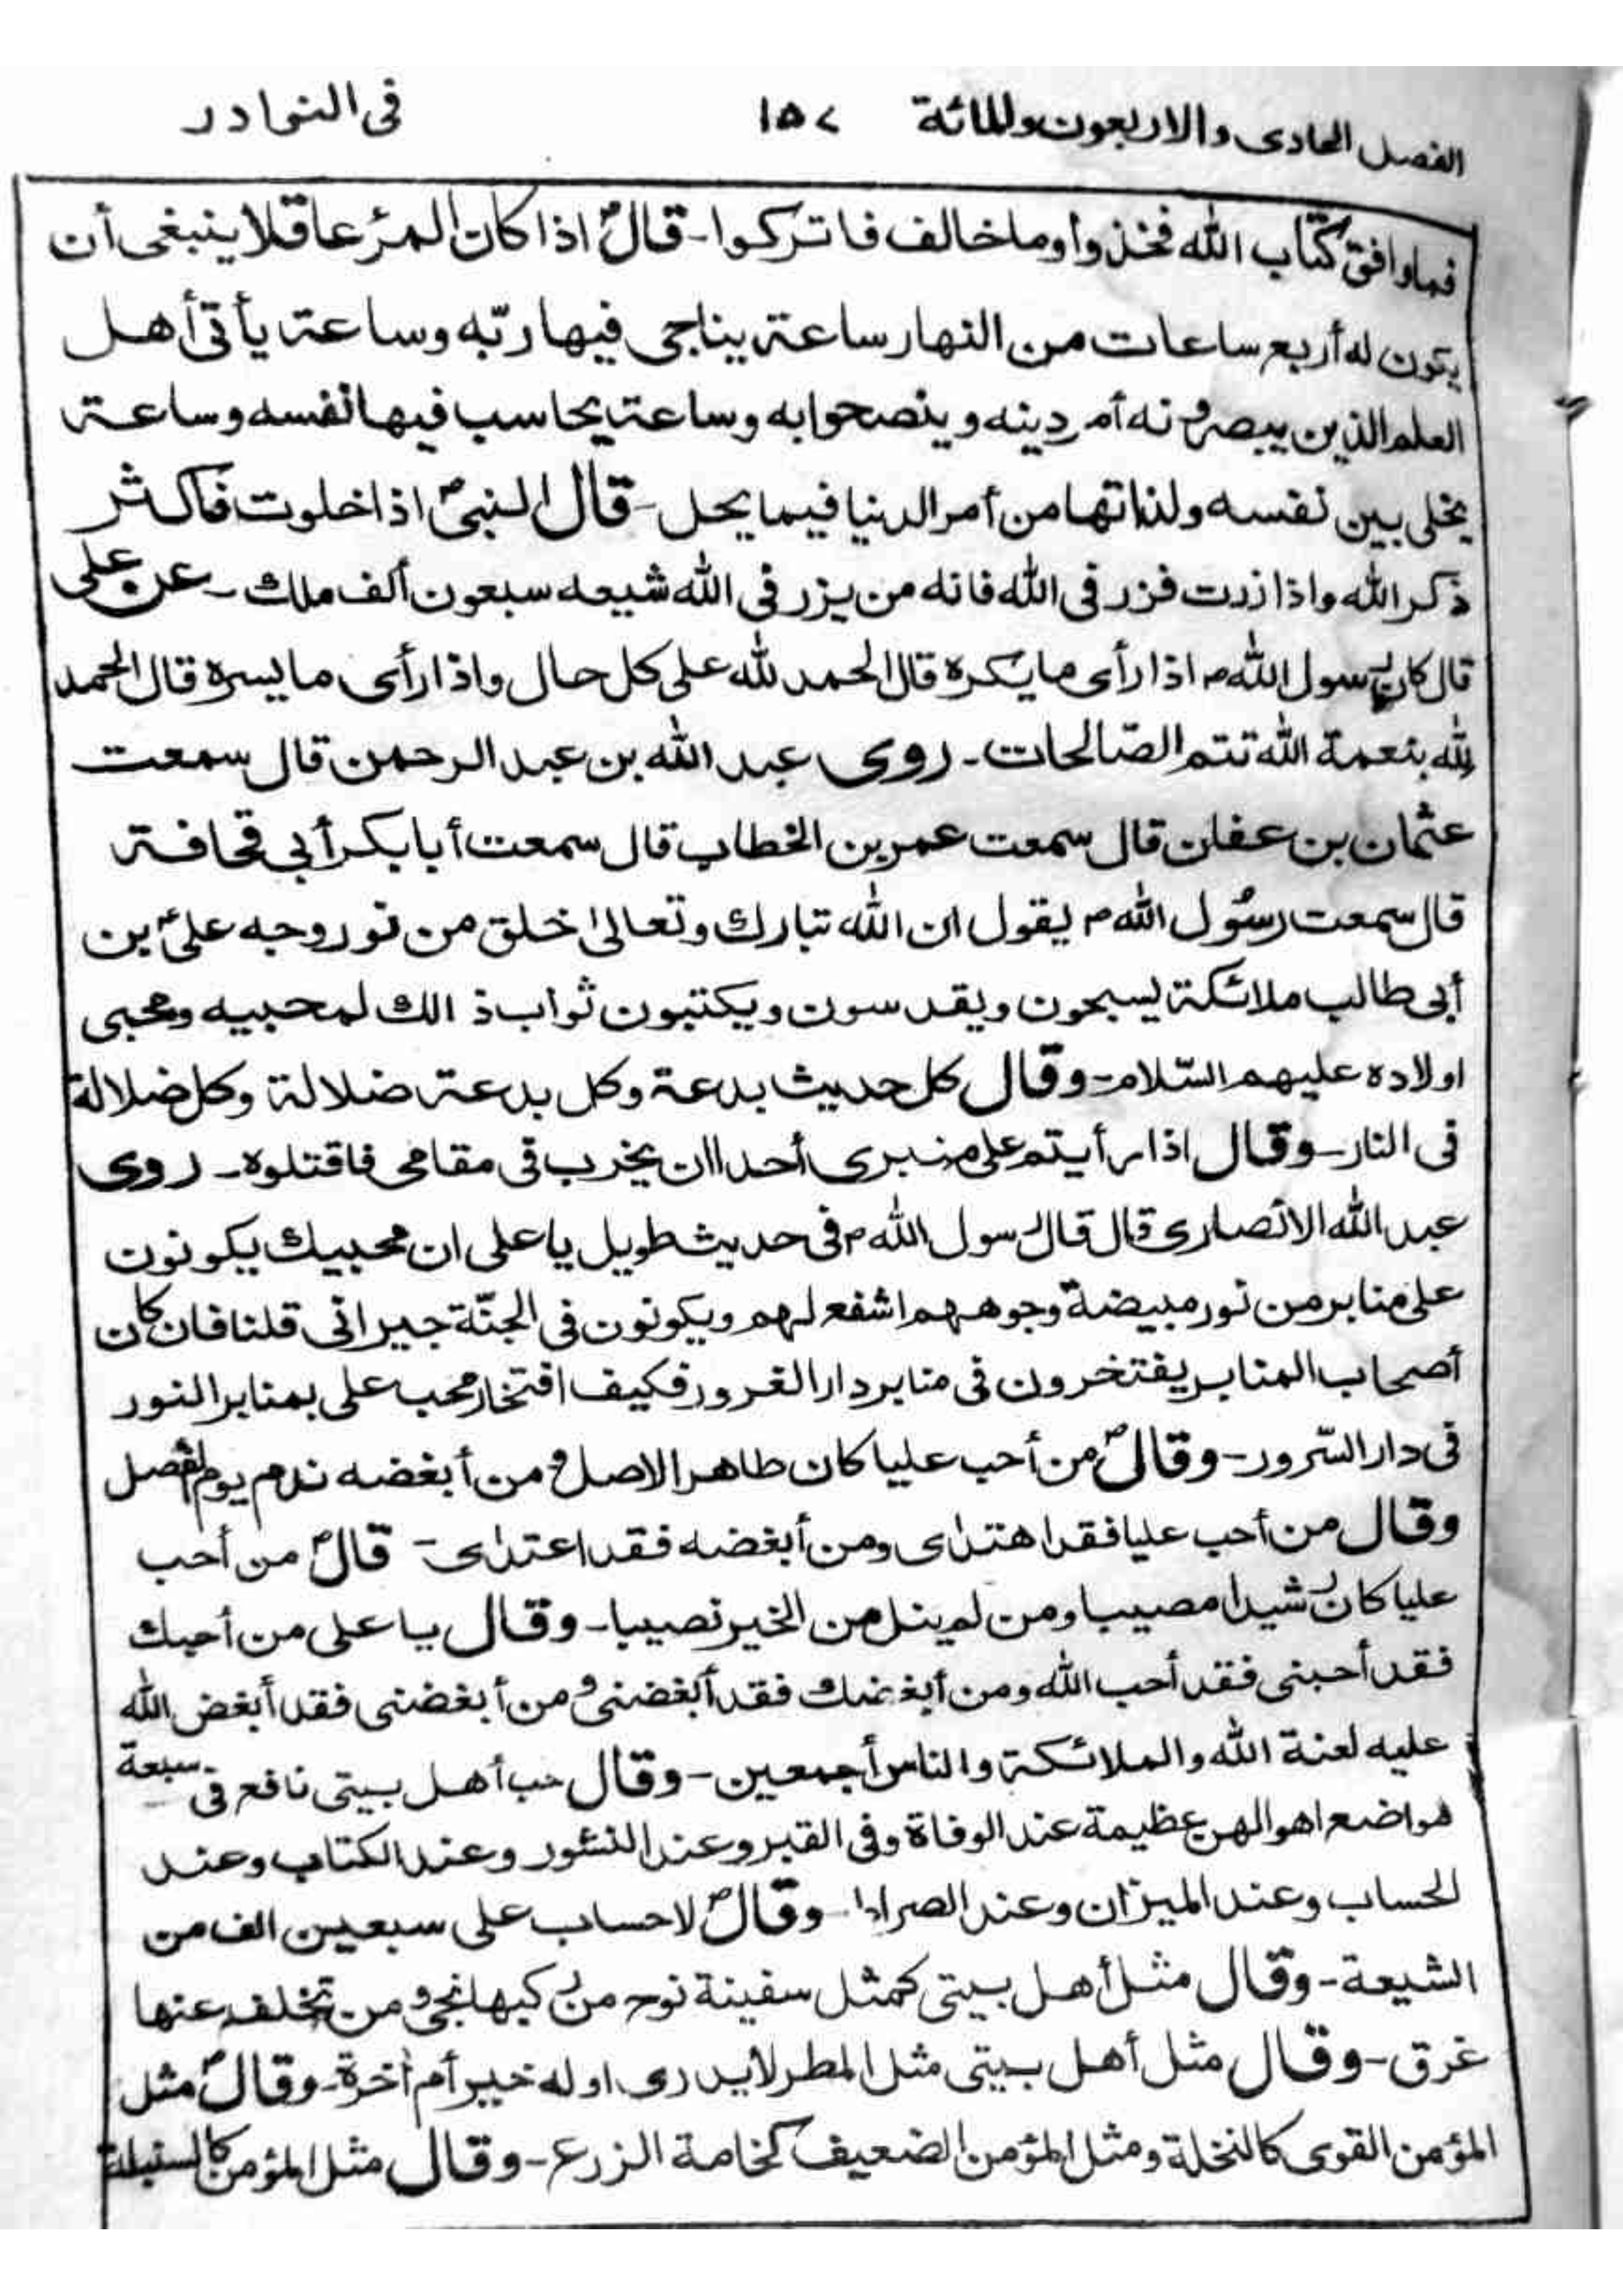 الفصل الحادى والاربعون والمائة ١٥٧ فى النوادر
فما وافق كتاب الله فخذوا وما خالف فاتركوا - قالؐ اذا كان المرٔ عاقلا ينبغى أن
يكون له أربع ساعات من النهار ساعة يناجى فيها ربّه وساعة يأتى أهل
العلم الذين يبصرونه أمر دينه وينصحوا به وساعة يحاسب فيها نفسه وساعة
يخلى بين نفسه ولذاتها من أمر الدنيا فيما يحل - قال النبىؐ اذا خلوت فاكثر
ذكر الله واذا زرت فزر فى الله فانه من يزر فى الله شيعه سبعون ألف ملك - عن على
قال كان رسول اللهؐ اذا رأى ما يكره قال الحمد لله على كل حال واذا رأى ما يسره قال الحمد
لله بنعمة الله تتم الصّالحات - روى عبد الله بن عبد الرحمن قال سمعت
عثمان بن عفان قال سمعت عمر بن الخطاب قال سمعت أبا بكر أبى قحافة
قال سمعت رسُول اللهؐ يقول ان الله تبارك وتعالىٰ خلق من نور وجه علىؑ بن
أبى طالب ملائكة يسبحون ويقدسون ويكتبون ثواب ذالك لمحبيه ومحبى
اولاده عليهم السّلام - وقال كل حديث بدعة وكل بدعة ضلالة وكل ضلالة
فى النار - وقال اذا رأيتم على منبرى أحدا ان يخرب فى مقامى فاقتلوه - روى
عبد الله الانصارى قال قال رسول اللهؐ فى حديث طويل يا على ان محبيك يكونون
على منابر من نور مبيضة وجوههم اشفع لهم ويكونون فى الجنّة جيرانى قلنا فان كان
أصحاب المنابر يفتخرون فى منابر دار الغرور فكيف افتخار محب على بمنابر النور
فى دار السّرور - وقالؐ من أحب عليا كان طاهر الاصل ومن أبغضه ندم يوم الفصل
وقال من أحب عليا فقد اهتدى ومن أبغضه فقد اعتدى - قالؐ من أحب
عليا كان رشيدا مصيبا ومن لم ينل من الخير نصيبا - وقال يا على من أحبك
فقد أحبنى فقد أحب الله ومن أبغضك فقد أبغضنى ومن أبغضنى فقد أبغض الله
عليه لعنة الله والملائكة والناس أجمعين - وقال حب أهل بيتى نافع فى سبعة
مواضع اهوالهن عظيمة عند الوفاة وفى القبر وعند النشور وعند الكتاب وعند
الحساب وعند الميزان وعند الصراط - وقالؐ لا حساب على سبعين الف من
الشيعة - وقال مثل أهل بيتى كمثل سفينة نوح من ركبها نجى ومن تخلف عنها
غرق - وقال مثل أهل بيتى مثل المطر لا يدرى اوله خير أم أخرة - وقالؐ مثل
المؤمن القوى كالنخلة ومثل المؤمن الضعيف كخامة الزرع - وقال مثل المؤمن كالسنبلة